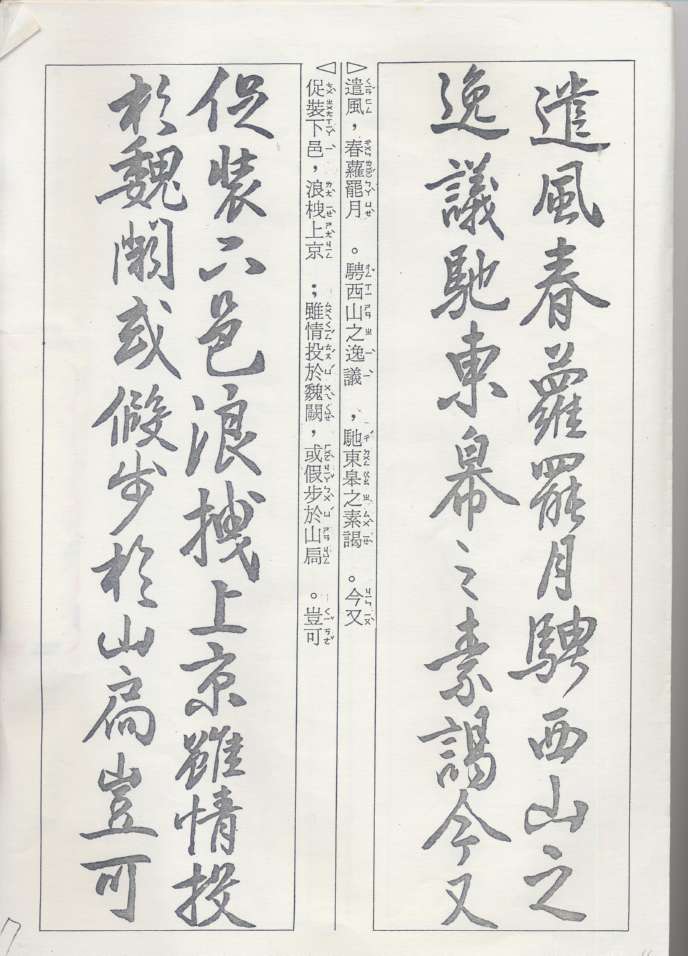 遣風春蘿罷月騁西山之
逸議馳東皋之素謁今又
▷遣風，春蘿罷月。騁西山之逸議，馳東皋之素謁。今又
◁促裝下邑，浪栧上京；雖情投於魏闕，或假步於山扃。豈可
促裝下邑浪拽上京雖情投
於魏闕或假步於山扃豈可
7